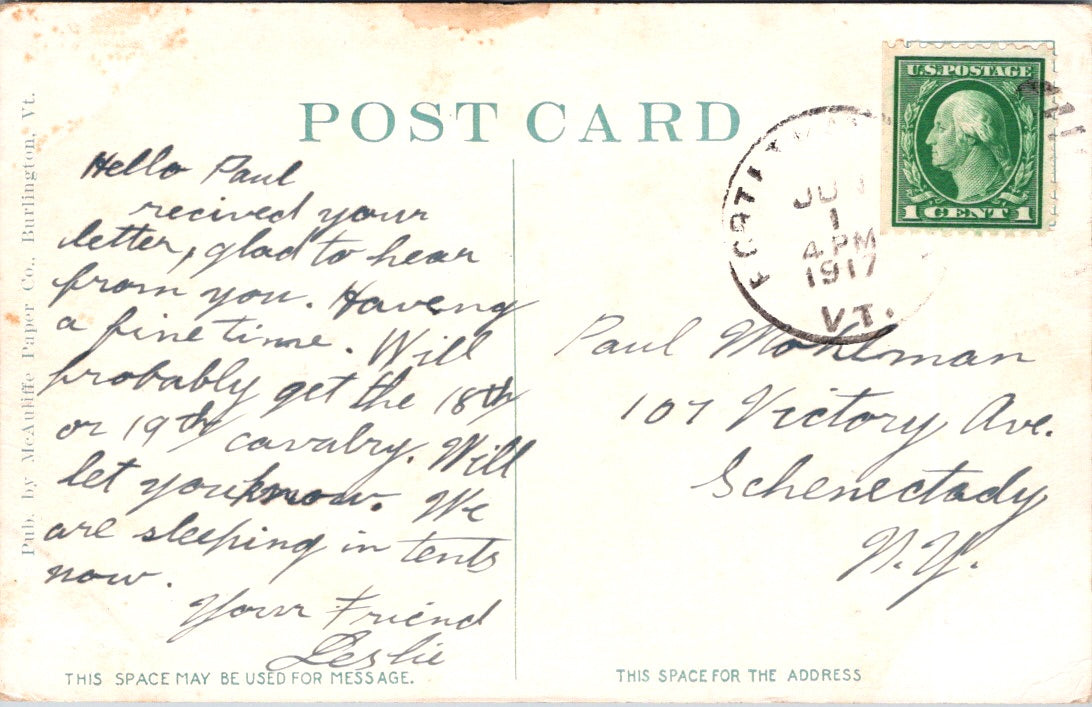 POST CARD
Pub. by McAuliffe Paper Co., Burlington, Vt.
Hello Paul
recived your
letter, glad to hear
from you. Haveng
a fine time. Will
probably get the 18th
or 19th cavalry. Will
let you know. We
are sleeping in tents
now.
Your Friend
Leslie
THIS SPACE MAY BE USED FOR MESSAGE.
U.S. POSTAGE
1 CENT 1
FORT
1
4 PM
1917
VT.
Paul Mohlman
107 Victory Ave.
Schenectady
N.Y.
THIS SPACE FOR THE ADDRESS